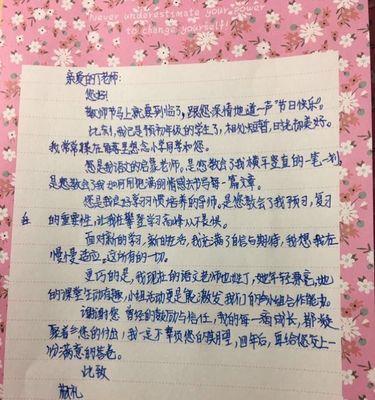 Never underestimate your power
to change yourself!
亲爱的丁老师:
您好!
教师节马上就要到临了,跟您深情地道一声"节日快乐"。
比来,我已是预初年级的学生了,相处短暂,日托却美好。
我常常摸在暗落里想念小学同学和您。
您是我语文的启蒙老师。是您教会了我横平竖直的一笔一划,
是您教会了我如何用饱满的情感去书写每一篇文章。
您是我良好学习习惯培养的导师。是您教会了我预习,复习
的重要性,让我在攀登学习高峰从不畏惧。
面对新的学习,新的生活,我充满了自信与期待,我想我在
慢慢适应,这所有的一切。
更巧的是,我现在的语文老师也姓丁,她年轻漂亮,她
的课堂生动有趣,小组活动更是能激发我们的小组合作能力。
谢谢您曾经的鼓励与信任,我的每一滴成长,都凝
聚着您的付出,我一定不辜负您的期望,四年后,再给您交上一
份满意的答卷。
此致
敬礼